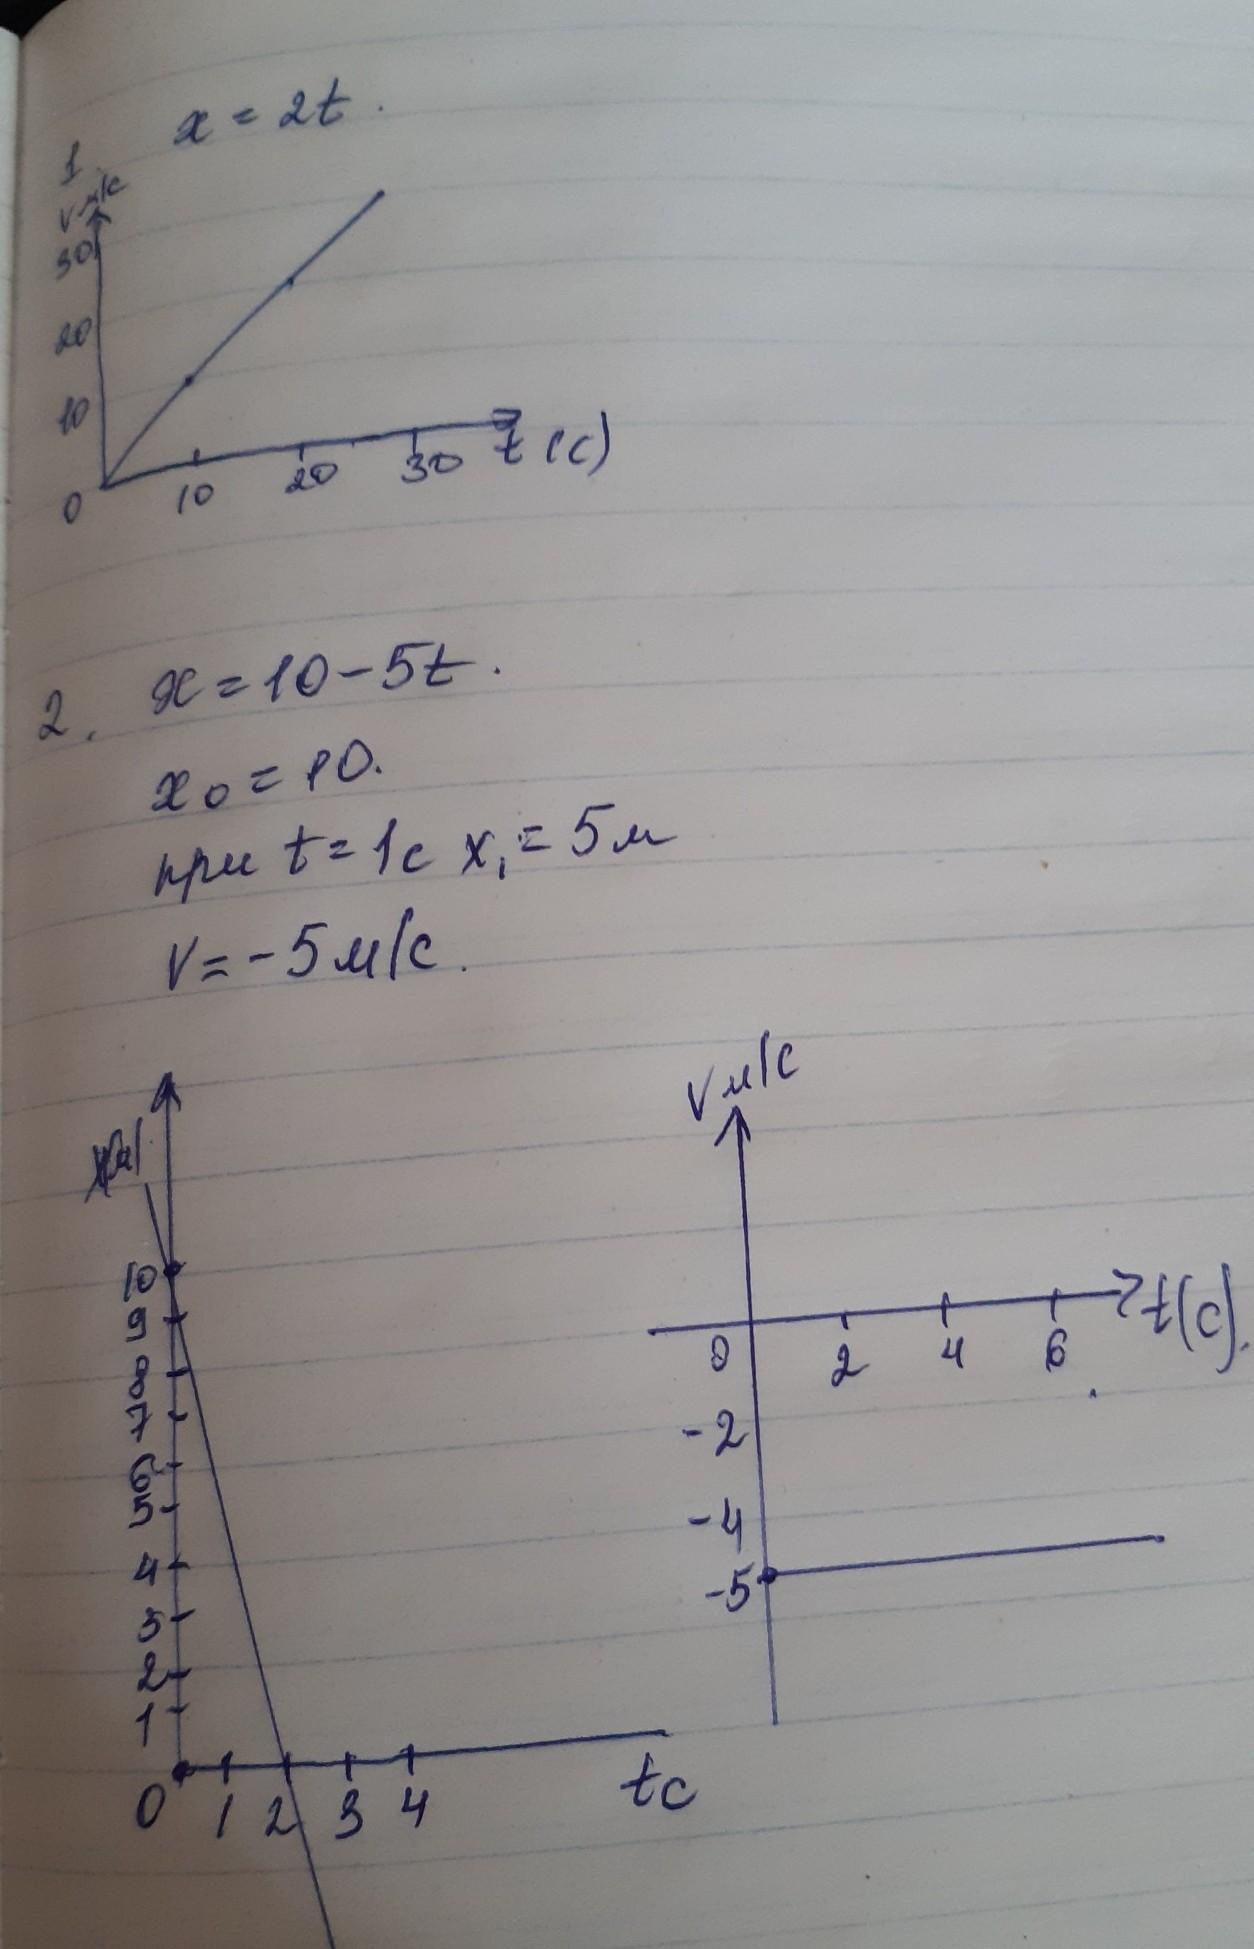 x = 2t.
1.
V м/с
30
20
10
0
10 20 30 t (с)
2. x = 10 - 5t.
x₀ = 10.
при t = 1с x₁ = 5м
V = -5 м/с.
10
9
8
7
6
5
4
3
2
1
0 1 2 3 4 tс
V м/с
0 2 4 6 t(с).
-2
-4
-5